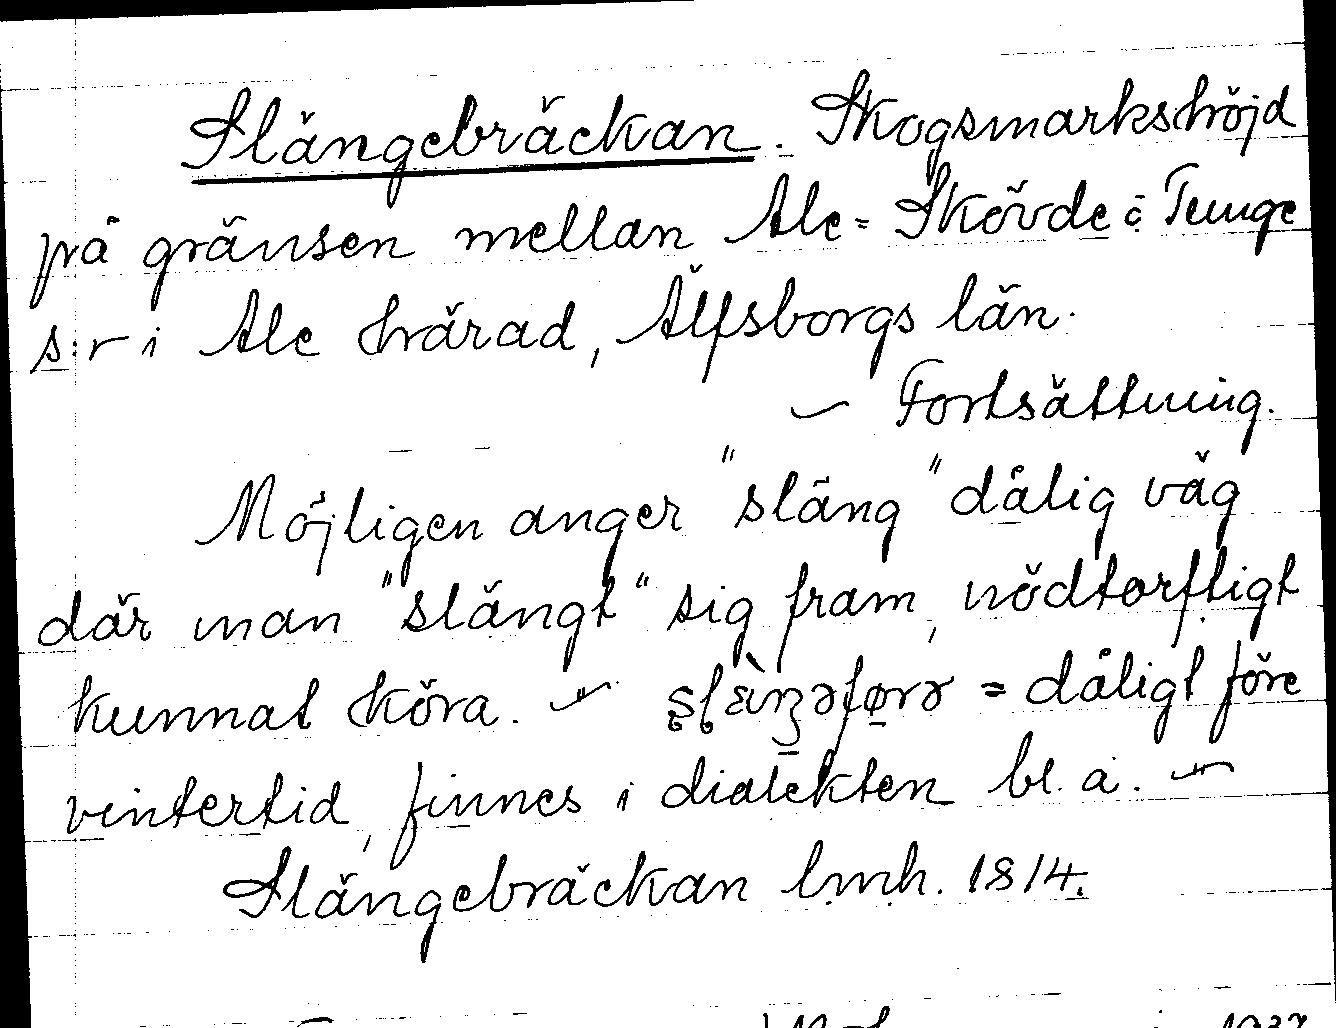 Slängebräckan. Skogsmarkshöjd
på gränsen mellan Ale-Skövde o. Tunge
s:r i Ale härad, Älfsborgs län.
– Fortsättning.
Möjligen anger "släng" dålig väg
där man "slängt" sig fram, nödtorftigt
kunnat köra. – = dåligt före
vintertid, finnes i dialekten bl. a. –
Slängebräckan lmh. 1814.